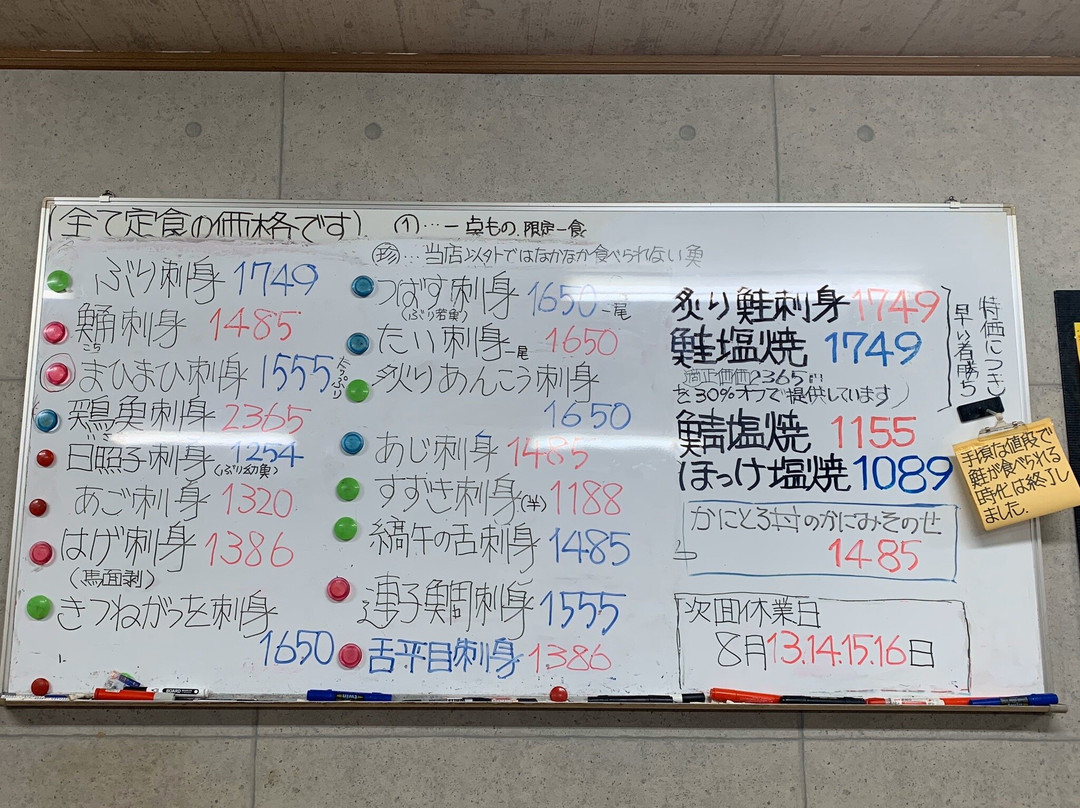 (全て定食の価格です)
①…一点もの、限定一食
珍…当店以外ではなかなか食べられない魚
ぶり刺身 1749
鯒刺身 1485
こち
まひまひ刺身 1555 たっぷり
鶏魚刺身 2365
いさき
日照子刺身 1254
(ぶり幼魚)
あご刺身 1320
はげ刺身 1386
(馬面剥)
きつねがつを刺身
1650
つばす刺身 1650 一尾
(ぶり若魚)
たい刺身 一尾 1650
炙りあんこう刺身
1650
あじ刺身 1485
すずき刺身(半) 1188
縞午の舌刺身 1485
連子鯛刺身 1555
舌平目刺身 1386
炙り鮭刺身 1749
鮭塩焼 1749
適正価価2365円
を30%オフで提供しています)
特価につき
早い者勝ち
鯖塩焼 1155
ほっけ塩焼 1089
手頃な値段で
鮭が食べられる
時代は終了し
ました.
かにとろ丼のかにみそのせ
1485
次回休業日
8月13.14.15.16日